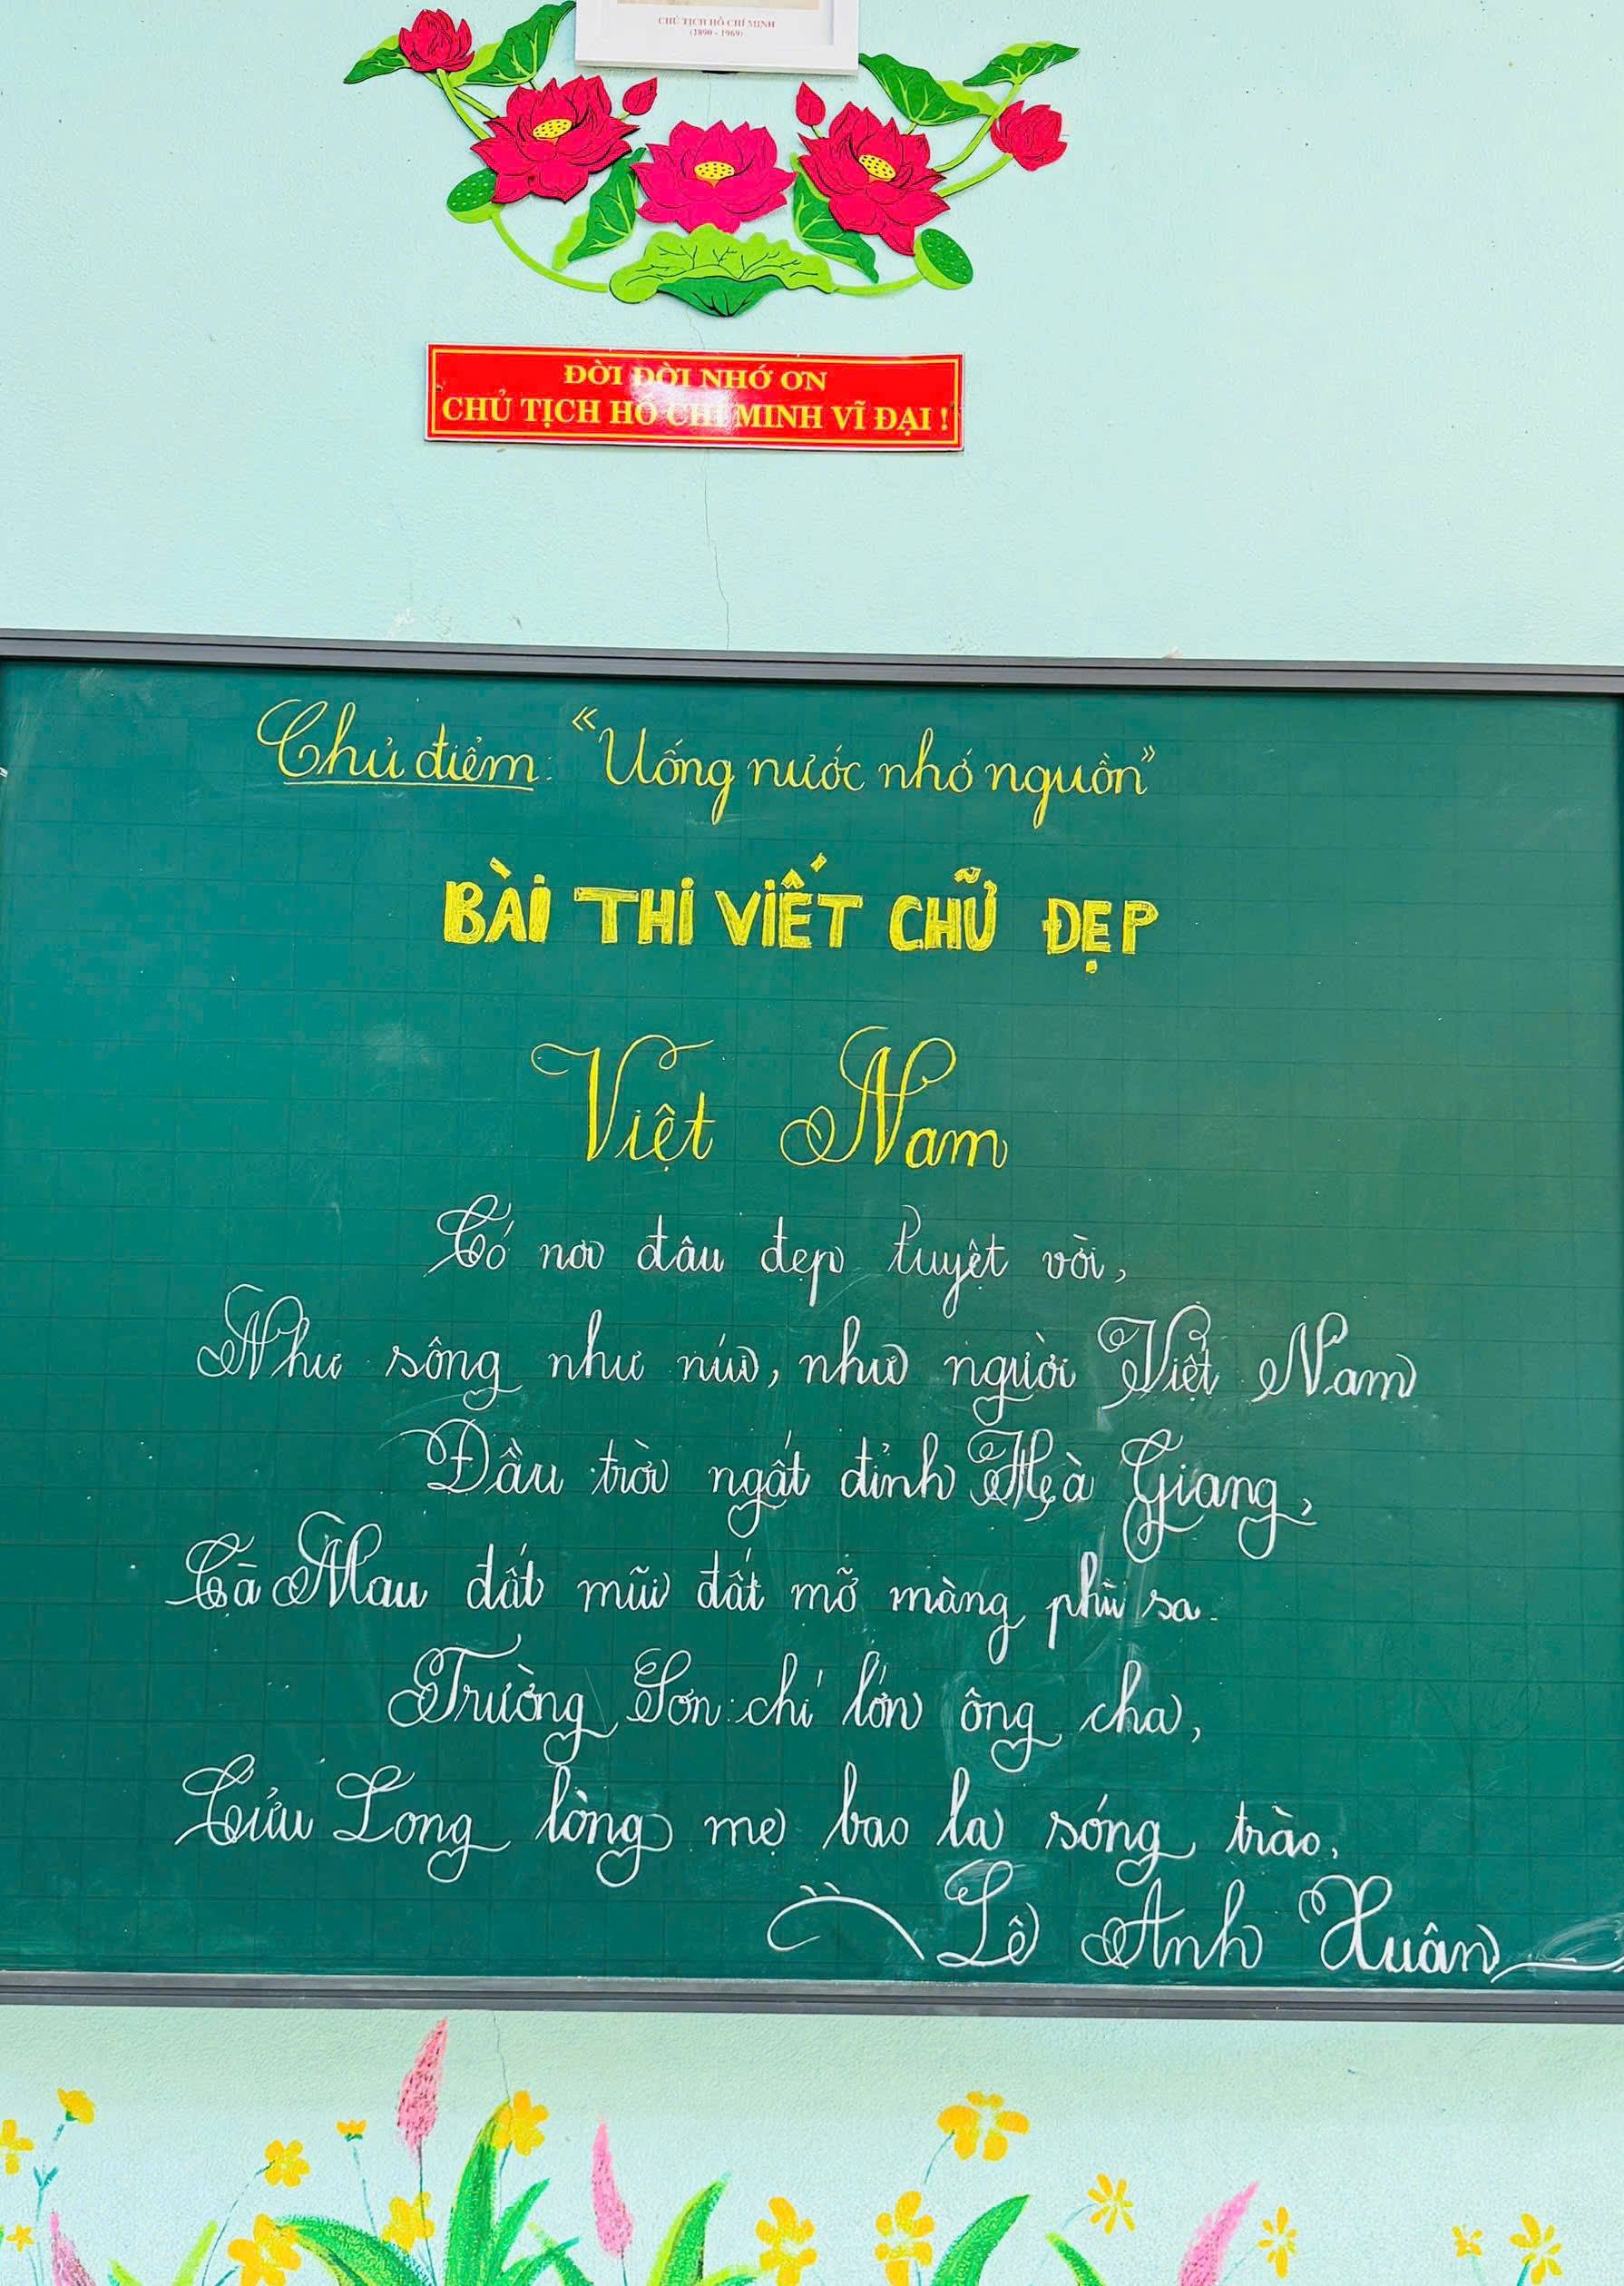 CHỦ TỊCH HỒ CHÍ MINH
(1890 - 1969)
ĐỜI ĐỜI NHỚ ƠN
CHỦ TỊCH HỒ CHÍ MINH VĨ ĐẠI !
Chủ điểm: "Uống nước nhớ nguồn"
BÀI THI VIẾT CHỮ ĐẸP
Việt Nam
Có nơi đâu đẹp tuyệt vời,
Như sông như núi, như người Việt Nam
Đầu trời ngất đỉnh Hà Giang,
Cà Mau đất mũi đất mỡ màng phù sa.
Trường Sơn: chí lớn ông cha,
Cửu Long lòng mẹ bao la sóng trào.
Lê Anh Xuân